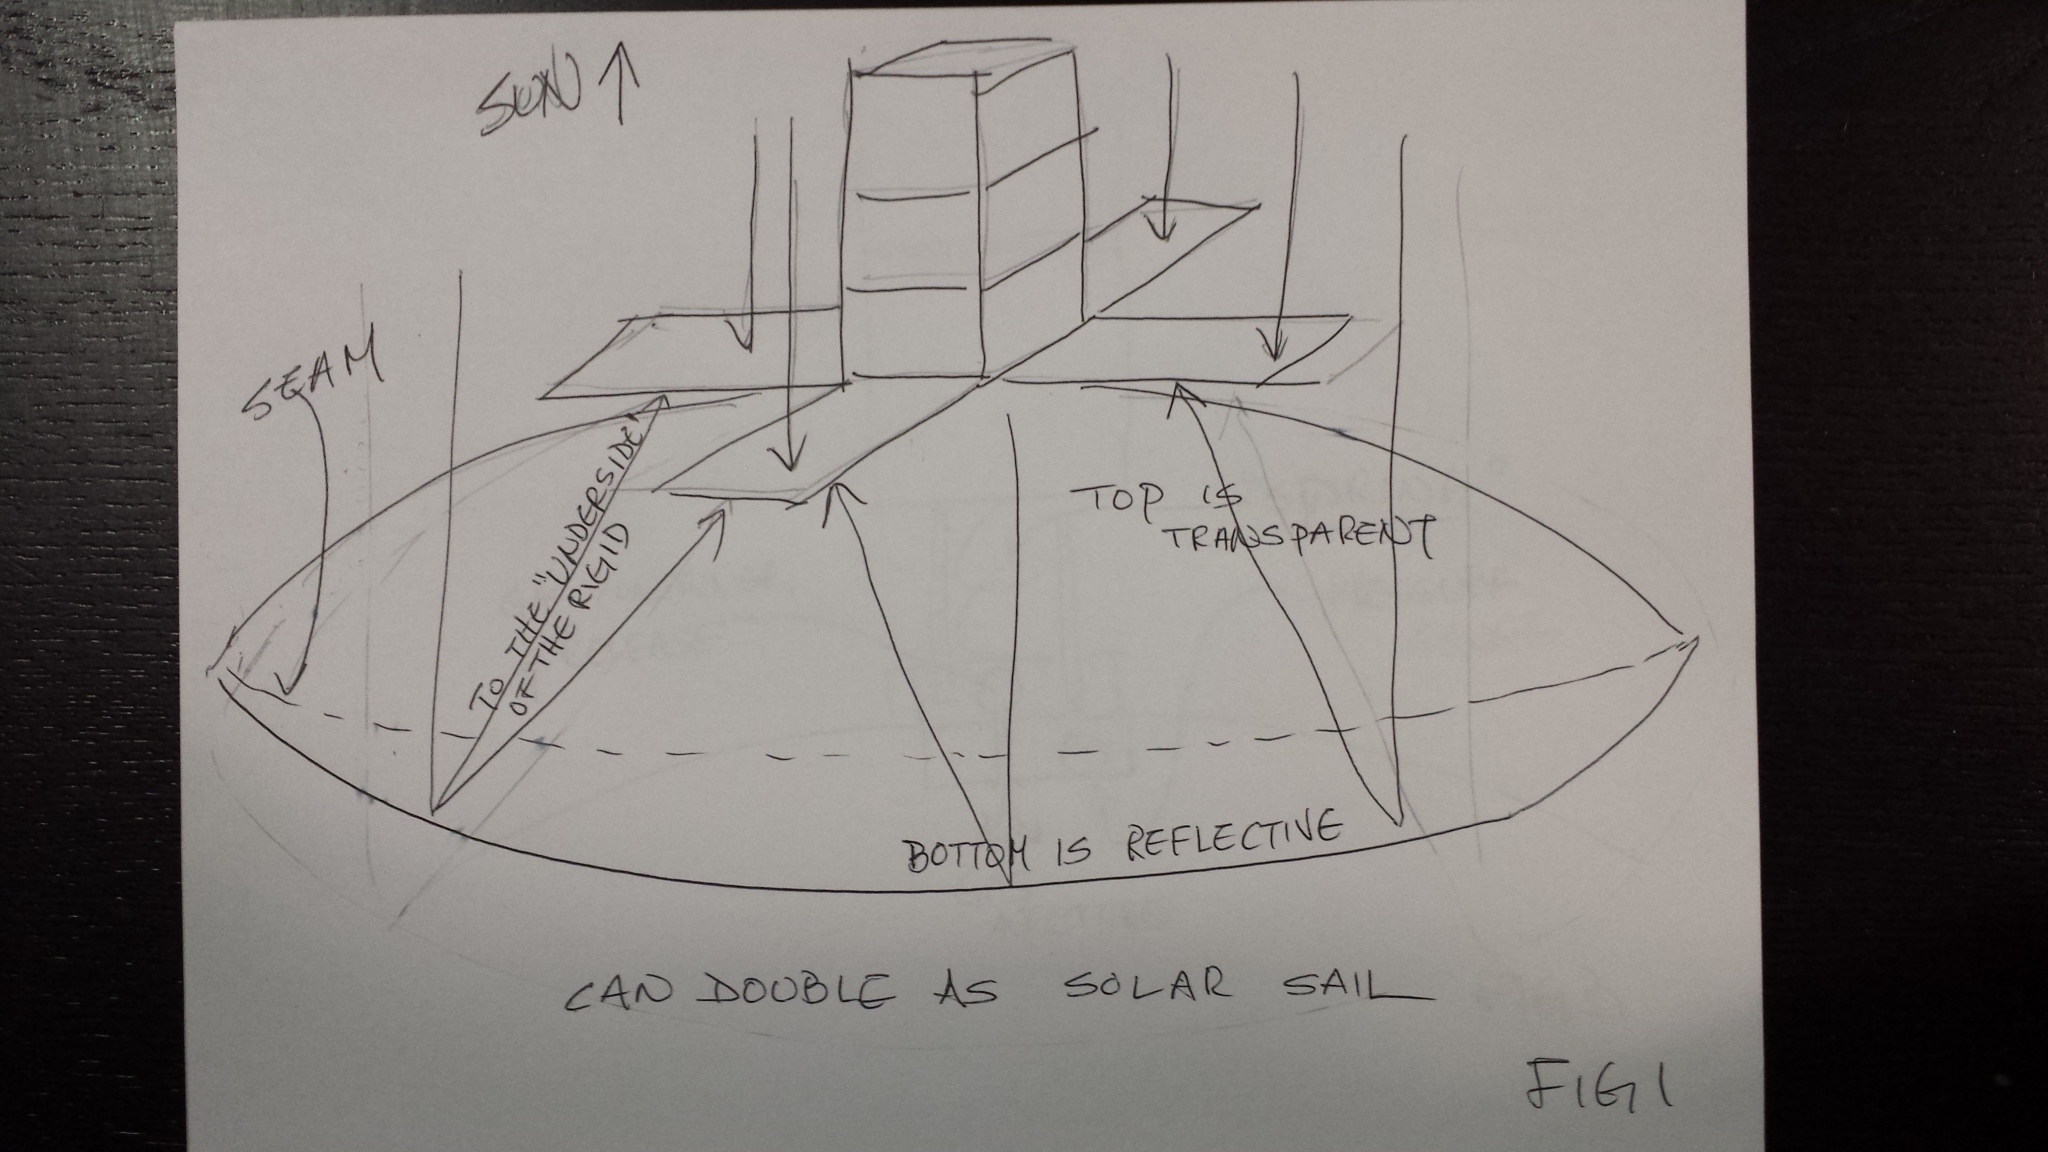 SUN ↑
SEAM
TO THE "UNDERSIDE"
OF THE RIGID
TOP IS
TRANSPARENT
BOTTOM IS REFLECTIVE
CAN DOUBLE AS SOLAR SAIL
FIG 1